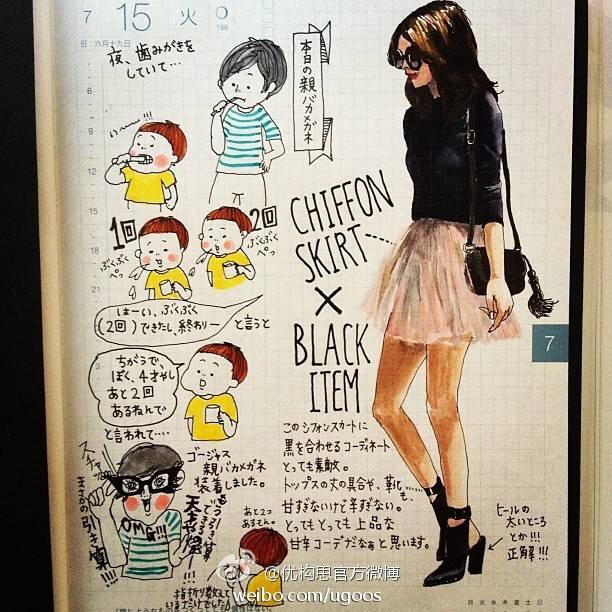 7 15 火
196
旧:六月十九日
夜、歯みがきを
していて…
本日の親バカメガネ
い〜〜!!!
6
9
12
15
18
21
3
1回
2回
ぶくぶく
ぺっ
ぶくぶく
ぺっ
はーい、ぶくぶく
(2回)できたし、終わりー
と言うと
ちがうで、
ぼく、4才やし
あと2回
あるねんで
と言われて…
CHIFFON
SKIRT
×
BLACK
ITEM
7
このシフォンスカートに
黒を合わせるコーディネート
とっても素敵。
トップスの丈の具合や、靴も、
甘すぎないけど辛すぎない。
とってもとっても上品な
甘辛コーデだなぁと思います。
ヒールの
太いところ
とか!!!
正解!!!
スチャッ
まさかの引き算!!!
OMG!!!
ゴージャス
親バカメガネ
装着しました。
もう引き算
できる
天才や
あと2つ
あるもん。
指折り数えて
いるだけでした
月 火 水 木 金 土 日
@优构思官方微博
weibo.com/ugoos